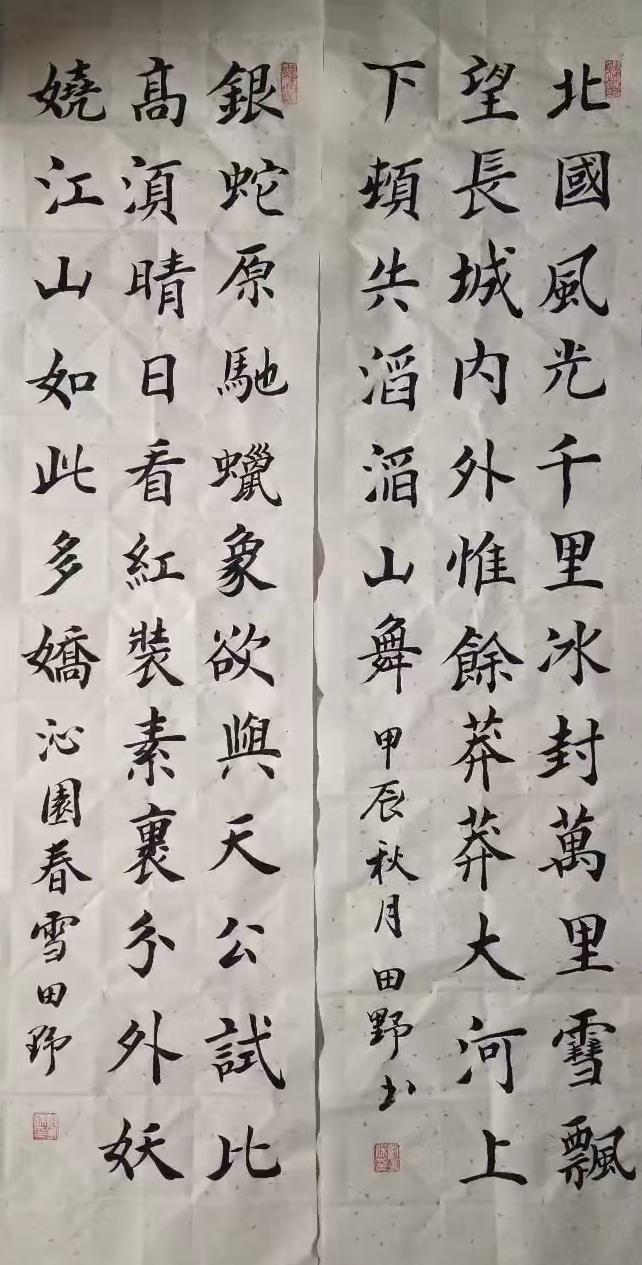 北國風光千里冰封萬里雪飄
望長城内外惟餘莽莽大河上
下頓失滔滔山舞 甲辰秋月田野书
銀蛇原馳蠟象欲與天公試比
髙須晴日看紅裝素裹分外妖
嬈江山如此多嬌 沁園春雪田野